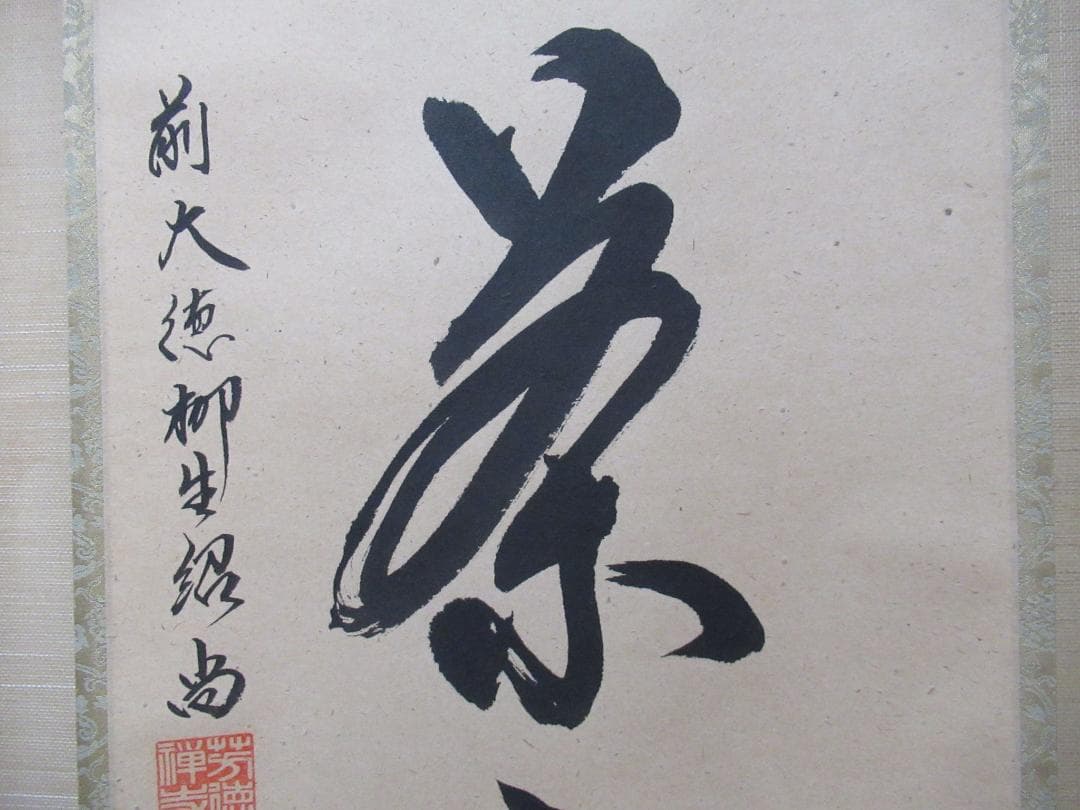 茶
前大徳柳生紹尚
芳徳
禅寺